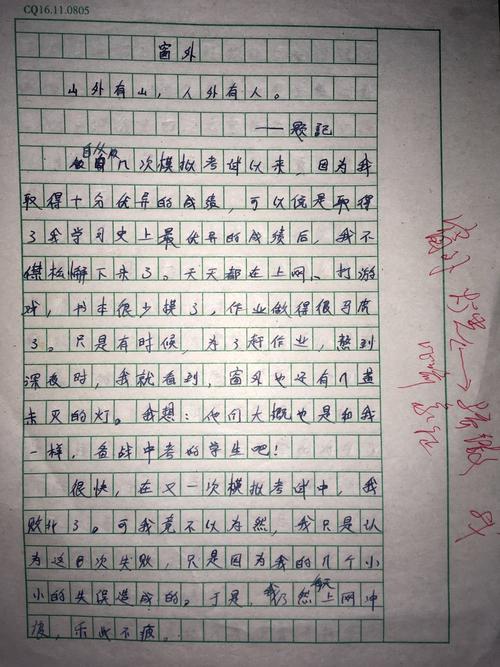 CQ16.11.0805
窗外
山外有山，人外有人。
——题记
自分做几次模拟考试以来，因为我
取得十分优异的成绩，可以说是取得
了我学习史上最优异的成绩后，我不
松懈下来了。天天都在上网、打游
戏，书本很少摸了，作业做得很马虎
了。只是有时候，为了赶作业，熬到
深夜时，我就看到，窗外也还有几盏
未灭的灯。我想：他们大概也是和我
一样，备战中考的学生吧！
很快，在又一次模拟考试中，我
败北了。可我竟不以为然，我只是认
为这次失败，只是因为我的几个小
小的失误造成的。于是，我仍然天天上网冲
浪，乐此不疲。